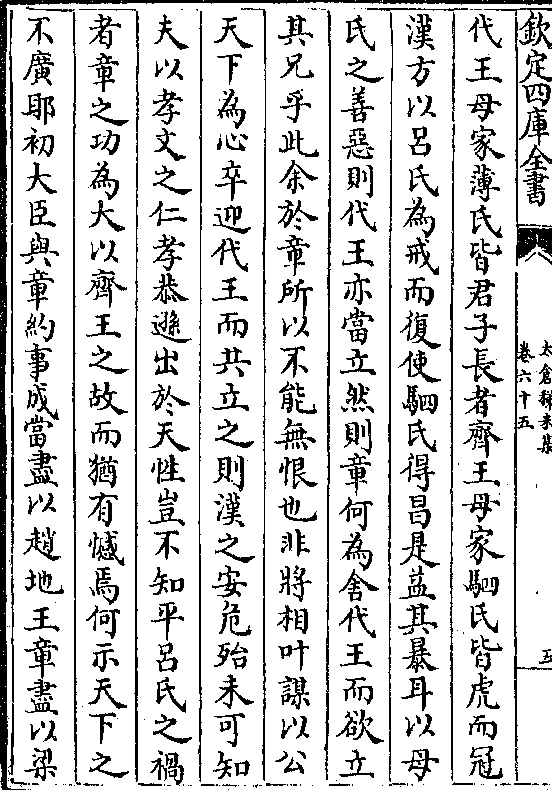 欽定四庫全書
太倉稊米集
卷六十五
五
代王母家薄氏皆君子長者齊王母家駟氏皆虎而冠
漢方以呂氏為戒而復使駟氏得昌是益其暴耳以母
氏之善惡則代王亦當立然則章何為舍代王而欲立
其兄乎此余於章所以不能無恨也非將相叶謀以公
天下為心卒迎代王而共立之則漢之安危殆未可知
夫以孝文之仁孝恭遜出於天性豈不知平呂氏之禍
者章之功為大以齊王之故而猶有憾焉何示天下之
不廣耶初大臣與章約事成當盡以趙地王章盡以梁